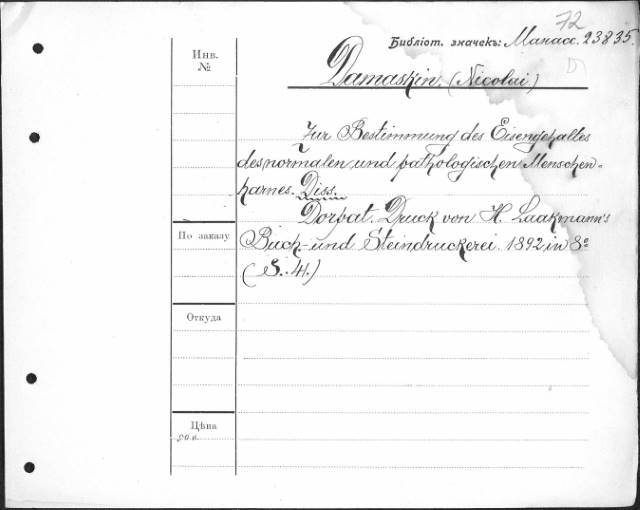 72
Библіот. значекъ: Манасс. 23835.
Инв.
№
Damaskin. (Nicolai)
D
Zur Bestimmung des Eisengehaltes
des normalen und pathologischen Menschen-
harnes. Diss.
Dorpat. Druck von H. Laakmann's
По заказу
Buch- und Steindruckerei. 1892, in 8°
(S. 41.)
Откуда
Цѣна